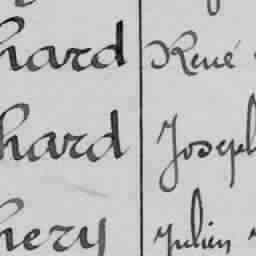 hard René
hard Joseph
hery Julien